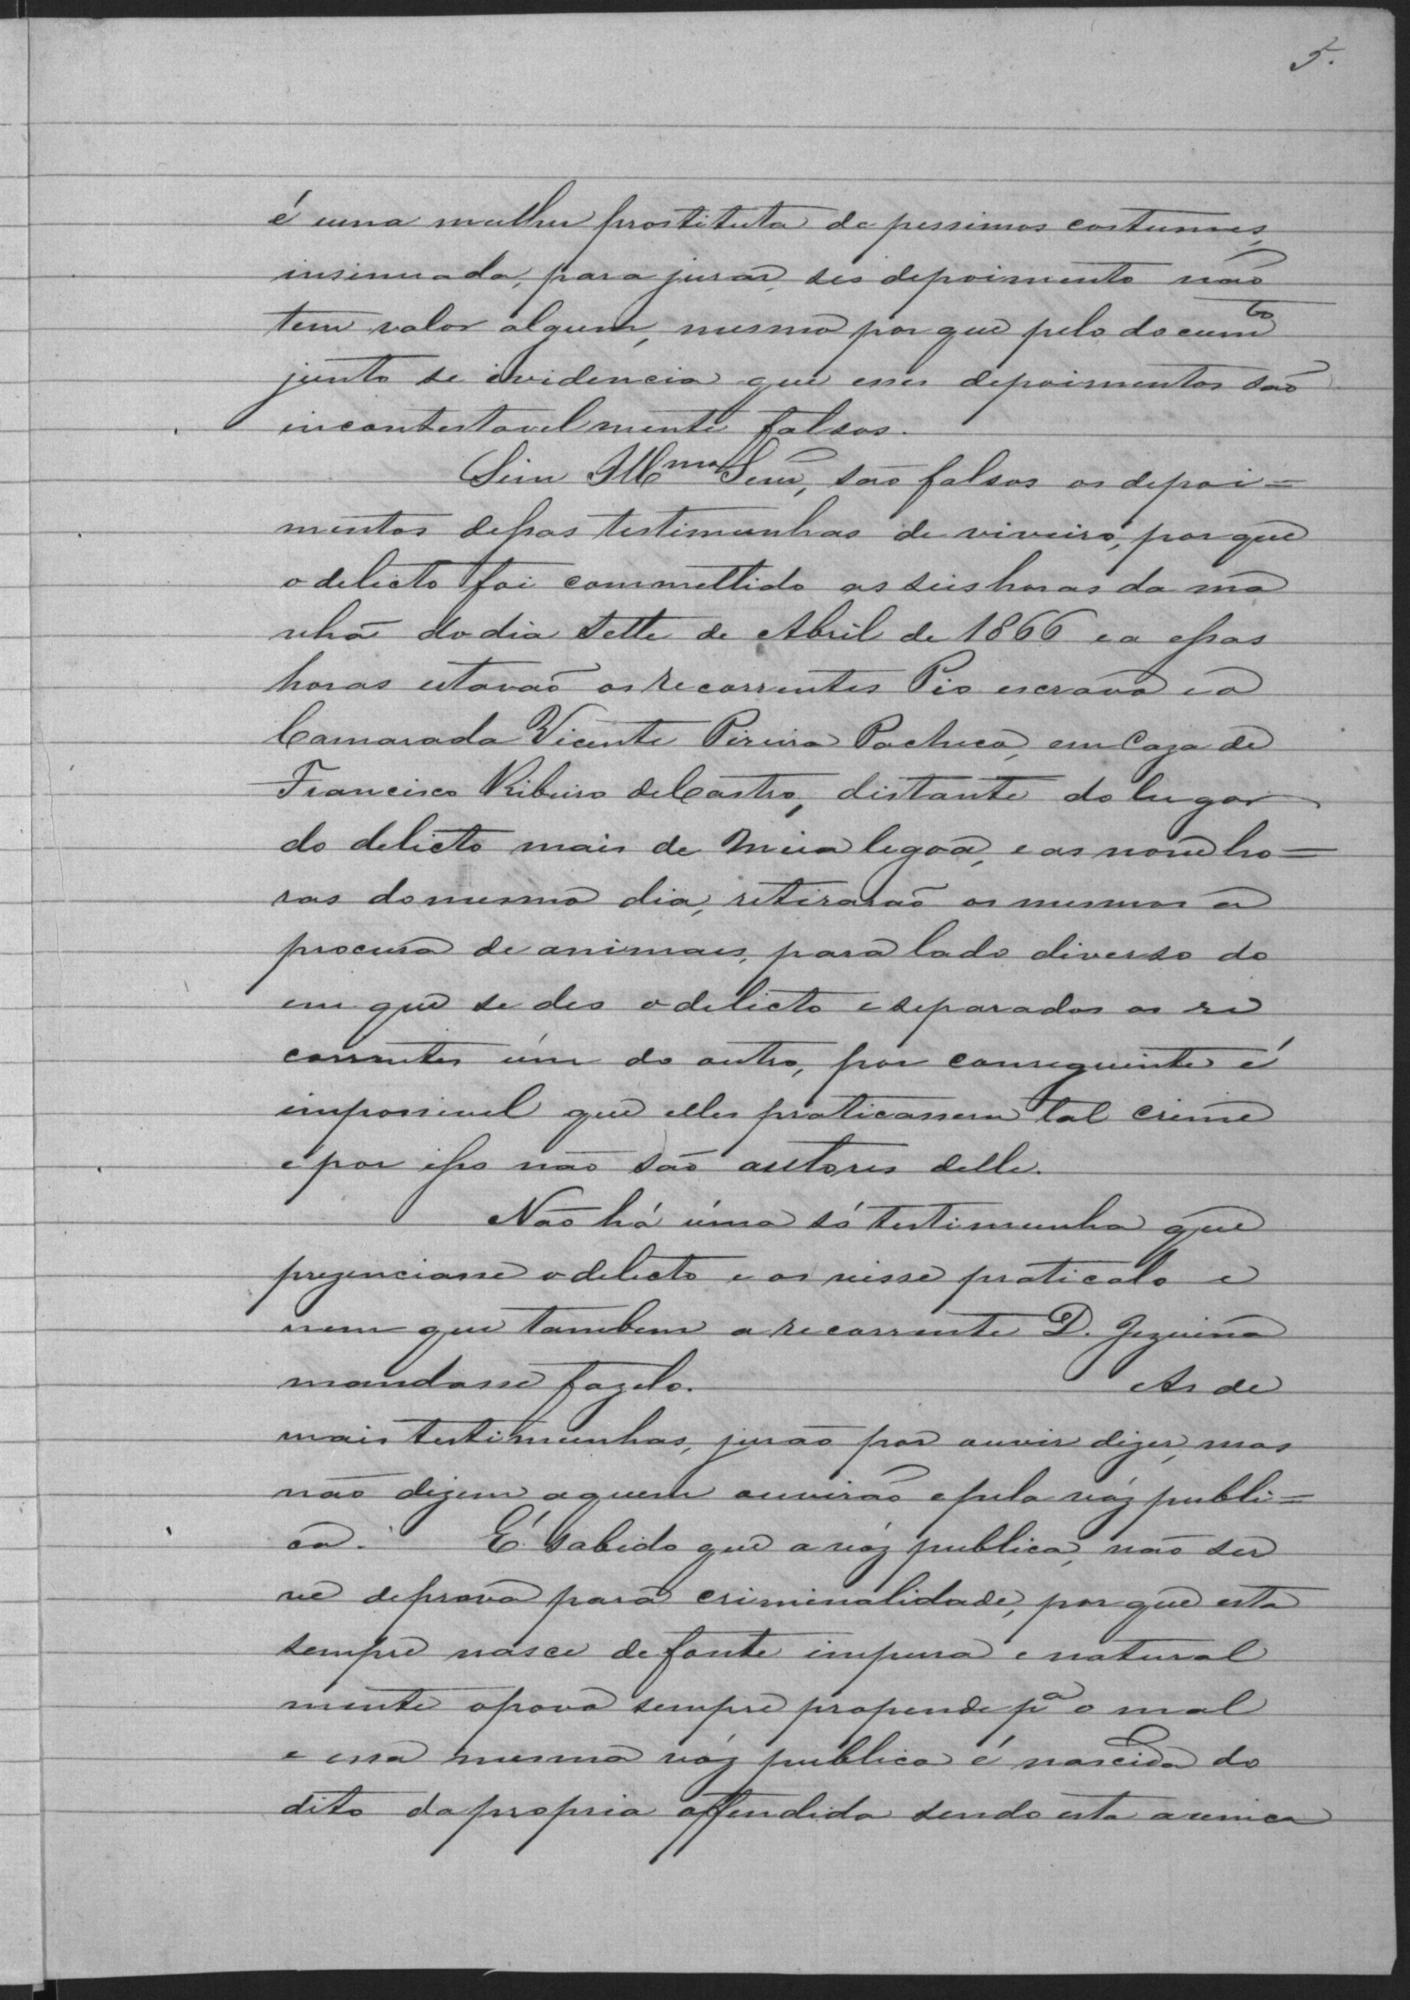 5.
é uma mulher prostituta de pessimos costumes,
insinuada, para jurar, seo depoimento não
tem valor algum, mesmo por que pelo docum^to
junto se evidencia que esses depoimentos são
incontestavelmente falsos.
Sim Ill^mo Senr, são falsos os depoi=
mentos dessas testimunhas de viveiro, por que
o delicto foi commettido as seis horas da ma
nhã do dia sette de Abril de 1866 e a essas
horas estavão os recorrentes Pio escravo e o
Camarada Vicente Pireira Pacheco, em Caza de
Francisco Ribeiro de Castro, distante do lugar
do delicto mais de meia legoa, e as nove ho=
ras do mesmo dia, retirarão os mesmos a
procura de animaes, para lado diverso do
em que se deo o delicto e separados os re
correntes úm do outro, por conseguinte é
impossivel que elles praticassem tal crime
e por isso não são autores delle.
Não há úma só testimunha que
prezenciasse o delicto e os visse praticalo e
nem que tambem a recorrente D. Jezuina
mandasse fazelo. As de
mais testimunhas, jurão por ouvir dizer, mas
não dizem a quem ouvirão e pela vóz publi=
ca. É sabido que a vóz publica, não ser
ve de prova para criminalidade, por que esta
sempre nasce de fonte impura e natural
mente o povo sempre propende p^a o mal
e essa mesma vóz publica é nascida do
dito da propria offendida sendo esta a unica